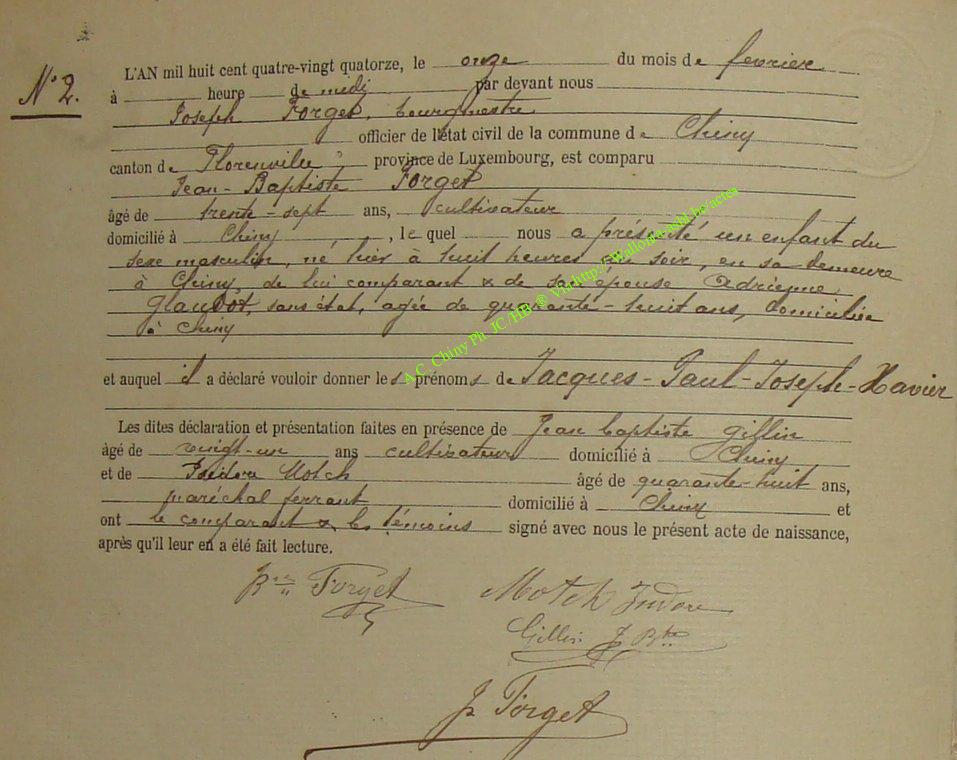 N° 2.
L'AN mil huit cent quatre-vingt quatorze, le onze du mois de fevrier
à heure de midi par devant nous
Joseph Forget, bourgmestre
officier de l'état civil de la commune de Chiny
canton de Florenville, province de Luxembourg, est comparu
Jean-Baptiste Forget
âgé de trente-sept ans, cultivateur
domicilié à Chiny, lequel nous a présenté un enfant du
sexe masculin, né hier à huit heures du soir, en sa demeure
à Chiny, de lui comparant & de son épouse Adrienne
Glaudot, sans état, agée de quarante-huit ans, domiciliée
à Chiny
et auquel il a déclaré vouloir donner les prénoms de Jacques-Paul-Joseph-Xavier
Les dites déclaration et présentation faites en présence de Jean baptiste gillin
âgé de vingt-un ans cultivateur domicilié à Chiny
et de Isidore Motch âgé de quarante-huit ans,
maréchal ferrant domicilié à Chiny et
ont le comparant & les témoins signé avec nous le présent acte de naissance,
après qu'il leur en a été fait lecture.
Forget Motch Isidore
Gillin J Bte
J Forget
A.C. Chiny Ph. JC /HB ® Via http://wallonia-asbl.be/actes